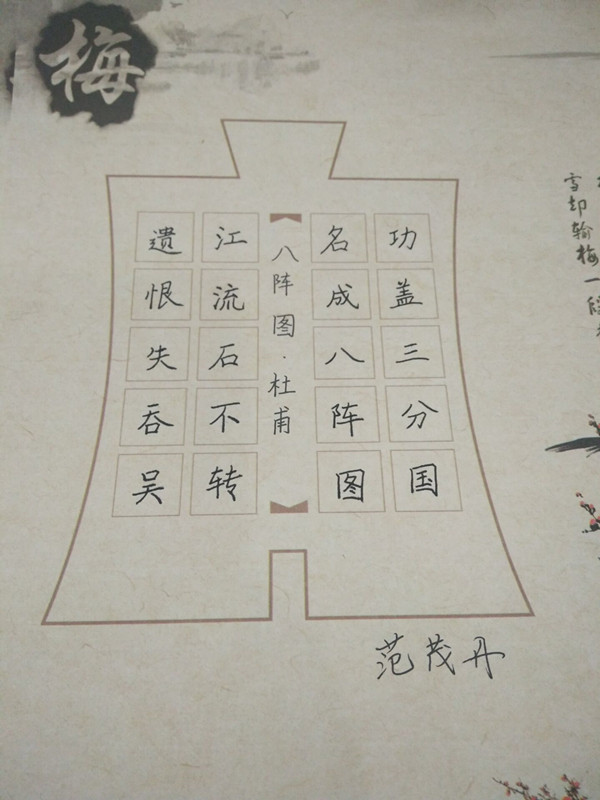 梅
功盖三分国
名成八阵图
八阵图·杜甫
江流石不转
遗恨失吞吴
范茂丹
雪却输梅一段